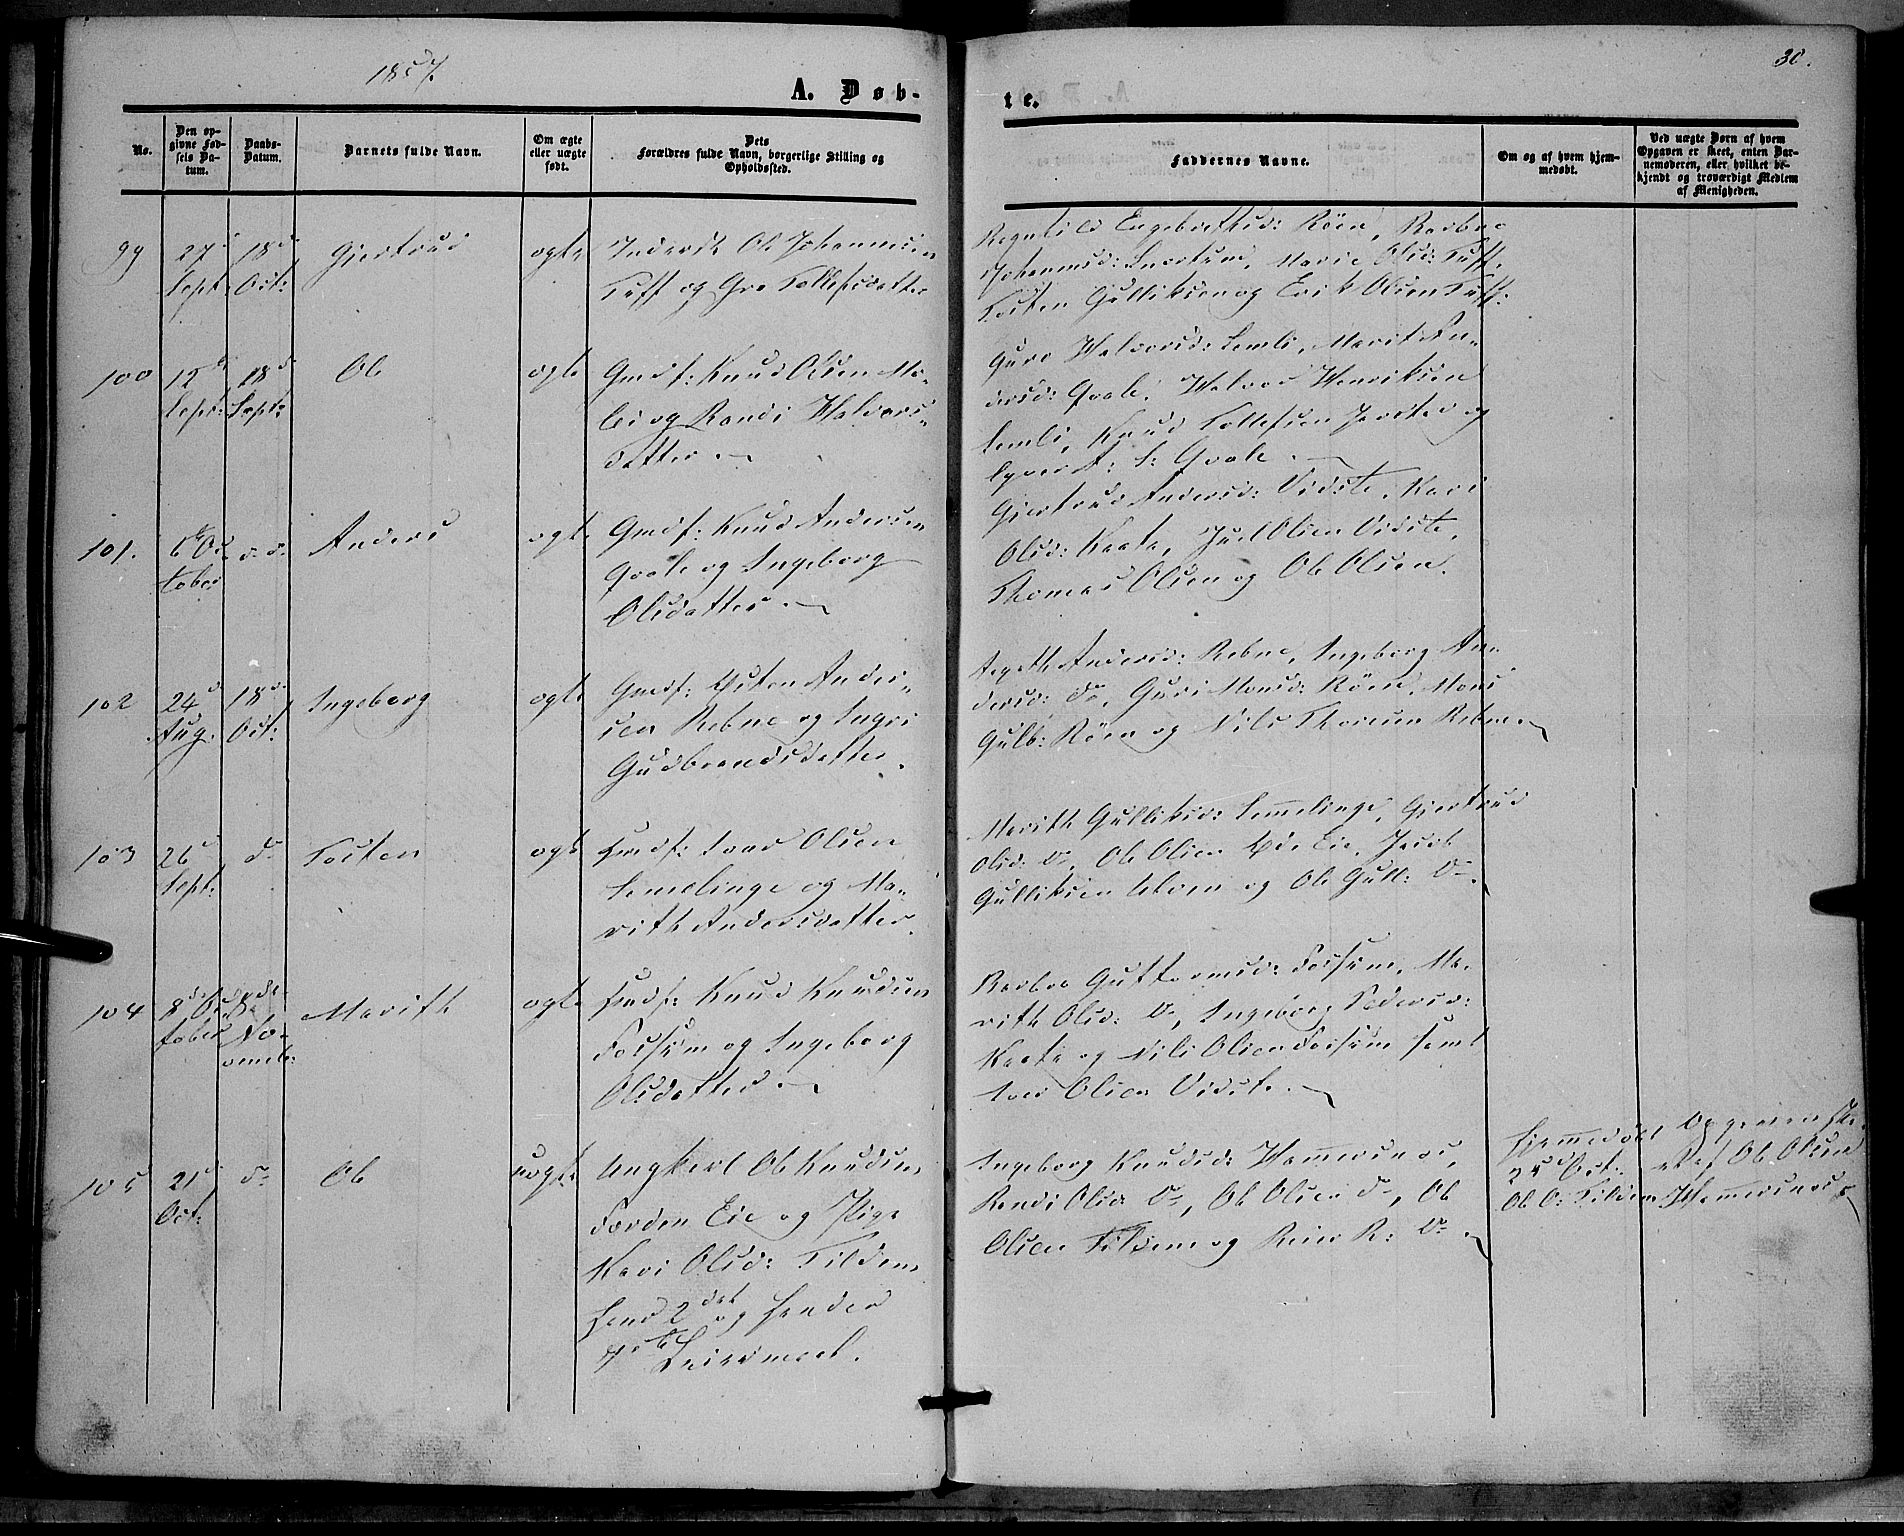 1857.
30.
A. Døb-
te.
No.
Den op-
givne Fød-
sels Da-
tum.
Daabs-
Datum.
Barnets fulde Navn.
Om ægte
eller uægte
født.
Dets
Forældres fulde Navn, borgerlige Stilling og
Opholdssted.
Faddernes Navne.
Om og af hvem hjem-
medøbt.
Ved uægte Børn af hvem
Opgaven er skeet, enten Bar-
nemoderen, eller hvilket be-
kjendt og troværdigt Medlem
af Menigheden.
99
27 Sept:
18 Oct:
Gjertrud
ægte
Inderst Ole Johannesen
Tuft og Gro Tollefsdatter
Ragnild Engebrethsd: Röen, Barbro
Johannesd: Snortum, Marie Olsd: Tuft,
Tosten Gulliksen og Erik Olsen Tuft.
100
12 Sept:
18 Sept:
Ole
ægte
Gmdf: Knud Olsen Mo-
lei og Randi Halvors-
datter.
Guro Halvorsd: Semli, Marit An-
dersd: Qvale, Halvor Henriksen
Semli, Knud Tollefsen og
S: Qvale.
101.
6 Oc-
tober
d. d.
Anders
ægte
Gmdf: Knud Andersen
Qvale og Ingeborg
Olsdatter.
Gjertrud Andersd: Vidste, Kari
Olsd: Kaate, Juel Olsen Vidste,
Thomas Olsen og Ole Olsen.
102
24 Aug:
18 Oct:
Ingeborg
ægte
Gmdf: Östen Ander-
sen Rebne og Ingri
Gudbrandsdatter.
Aagoth Andersd: Rebne, Ingeborg An-
dersd: do, Guri Monsd: Röen, Mons
Gulb: Röen og Nils Thoresen Rebne.
103
26 Sept:
do
Tosten
ægte
Husmf: Ivar Olsen
Semelinge og Ma-
rith Andersdatter.
Marith Gulliksd: Semmelinge, Gjertrud
Olsd: do, Ole Olsen Eie, Jacob
Gulliksen Ulven og Ole Gull: do.
104
8de Oc-
tober
8de No-
vemb:
Marith
ægte
Husmf: Knud Knudsen
Fossum og Ingeborg
Olsdatter.
Barbro Guttormsd: Fossum, Ma-
rith Olsd: do, Ingeborg Pedersd:
Kaate og Nils Olsen Fossum samt
Iver Olsen Vidste.
105
21 Oct:
do
Ole
uægte
Ungkarl Ole Knudsen
Færden Eie og Pige
Kari Olsd: Tildem
hans 2det og hendes
1ste Leiermaal.
Ingeborg Knudsd: Hammersnæs,
Randi Olsd: do, Ole Olsen do, Ole
Olsen Tildem og Reier R: do.
hjemmedöbt
25 Oct:
Ole O: Tildem
Opgaven ske-
et af Ole Olsen
Hammersnæs